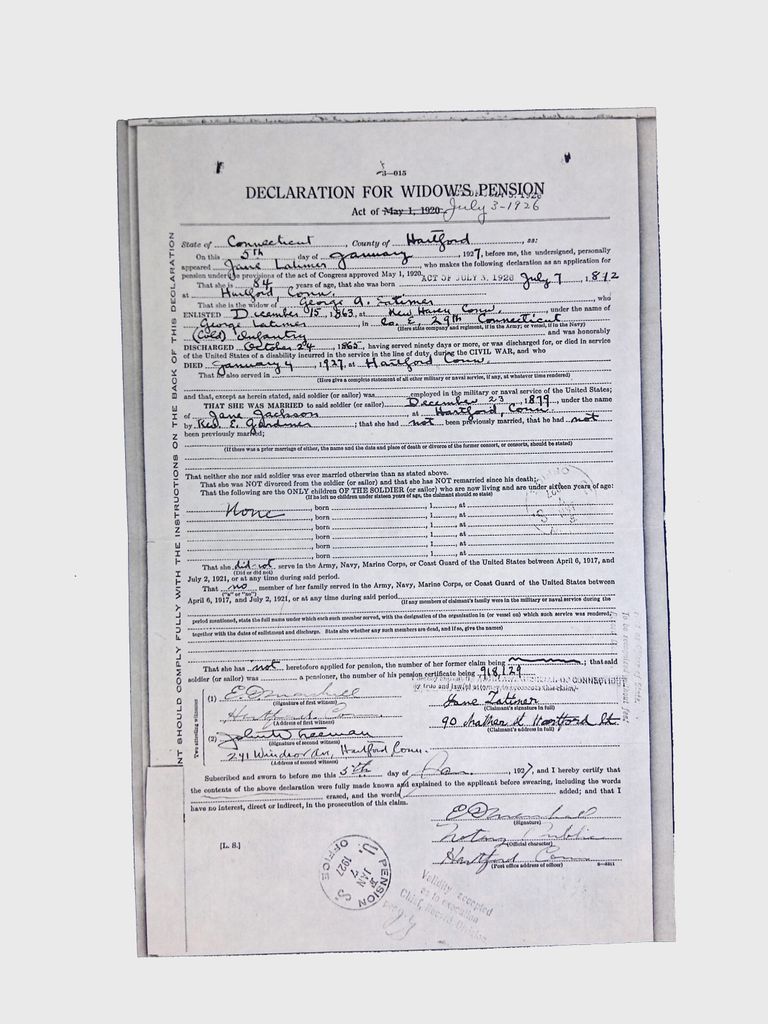 3—015
DECLARATION FOR WIDOW'S PENSION
Act of May 1, 1920 July 3-1926
State of Connecticut, County of Hartford, ss:
On this 5th day of January, 1927, before me, the undersigned, personally
appeared Jane Latimer, who makes the following declaration as an application for
pension under the provisions of the act of Congress approved May 1, 1920. ACT OF JULY 3, 1926
That she is 84 years of age, that she was born July 7, 1842
at Hartford, Conn.
That she is the widow of George A. Latimer, who
ENLISTED December 15, 1863, at New Haven, Conn., under the name of
George Latimer, in Co. E, 29th Connecticut
(Here state company and regiment, if in the Army; or vessel, if in the Navy)
(Cold) Infantry and was honorably
DISCHARGED October 24, 1865, having served ninety days or more, or was discharged for, or died in service
of the United States of a disability incurred in the service in the line of duty, during the CIVIL WAR, and who
DIED January 4, 1927, at Hartford Conn.
That he also served in
(Here give a complete statement of all other military or naval service, if any, at whatever time rendered)
and that, except as herein stated, said soldier (or sailor) was employed in the military or naval service of the United States;
THAT SHE WAS MARRIED to said soldier (or sailor) December 23, 1879, under the name
of Jane Jackson, at Hartford, Conn
by Rev. E. Gardiner; that she had not been previously married, that he had not
been previously married;
(If there was a prior marriage of either, the name and the date and place of death or divorce of the former consort, or consorts, should be stated)
That neither she nor said soldier was ever married otherwise than as stated above.
That she was NOT divorced from the soldier (or sailor) and that she has NOT remarried since his death;
That the following are the ONLY children OF THE SOLDIER (or sailor) who are now living and are under sixteen years of age:
(If he left no children under sixteen years of age, the claimant should so state)
None, born, 1, at
, born, 1, at
, born, 1, at
, born, 1, at
, born, 1, at
, born, 1, at
That she did not serve in the Army, Navy, Marine Corps, or Coast Guard of the United States between April 6, 1917, and
(Did or did not)
July 2, 1921, or at any time during said period.
That no member of her family served in the Army, Navy, Marine Corps, or Coast Guard of the United States between
("a" or "no")
April 6, 1917, and July 2, 1921, or at any time during said period.
(If any members of claimant's family were in the military or naval service during the
period mentioned, state the full name under which each such member served, with the designation of the organization in (or vessel on) which such service was rendered;
together with the dates of enlistment and discharge. State also whether any such members are dead, and if so, give the names)
That she has not heretofore applied for pension, the number of her former claim being; that said
soldier (or sailor) was a pensioner, the number of his pension certificate being 918,129
Two attesting witnesses
(1) E D Marshall
(Signature of first witness)
Hartford Conn
(Address of first witness)
(2) John W Freeman
(Signature of second witness)
241 Windsor Av, Hartford Conn.
(Address of second witness)
Jane Latimer
(Claimant's signature in full)
90 Mather St Hartford Ct
(Claimant's address in full)
Subscribed and sworn to before me this 5th day of Jan, 1927, and I hereby certify that
the contents of the above declaration were fully made known and explained to the applicant before swearing, including the words
erased, and the words added; and that I
have no interest, direct or indirect, in the prosecution of this claim.
E D Marshall
(Signature)
Notary Public
(Official character)
Hartford Conn
(Post office address of officer)
[L. S.]
U. S. PENSION OFFICE
JAN 7 1927
Validity accepted
as to execution
Chief, Record Division
NT SHOULD COMPLY FULLY WITH THE INSTRUCTIONS ON THE BACK OF THIS DECLARATION